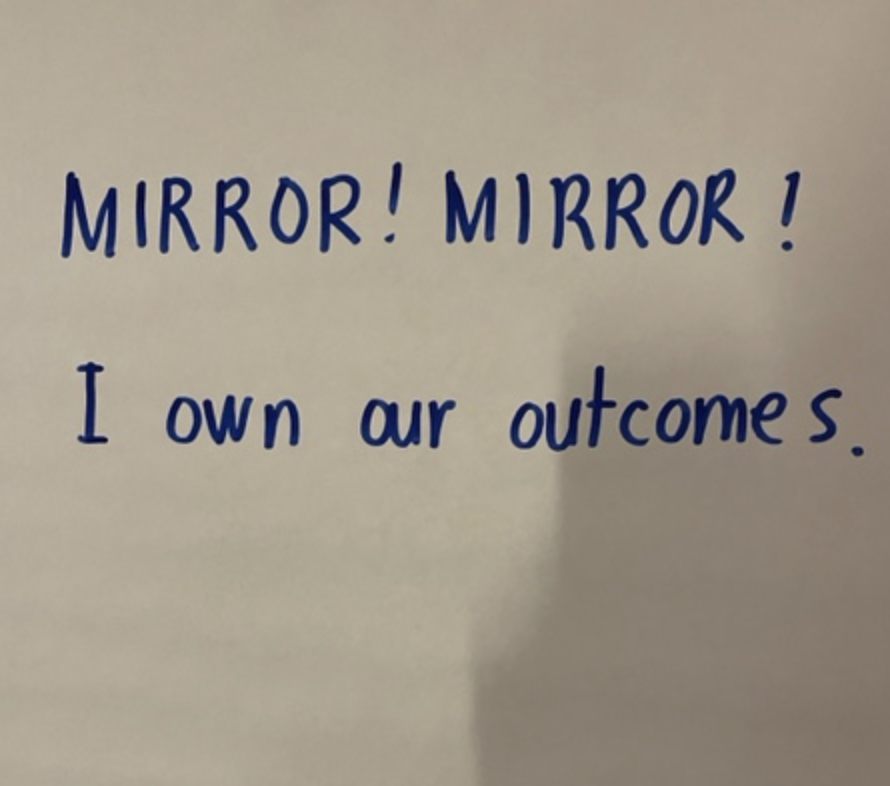 MIRROR! MIRROR!
I own our outcomes.